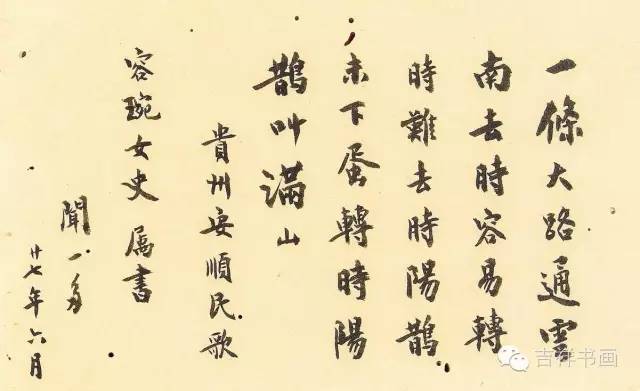 一條大路通雲
南去時容易轉
時難去時陽鵲
未下蛋轉時陽
鵲叫滿山
貴州安順民歌
容琬女史屬書
聞一多
廿七年六月
吉祥书画